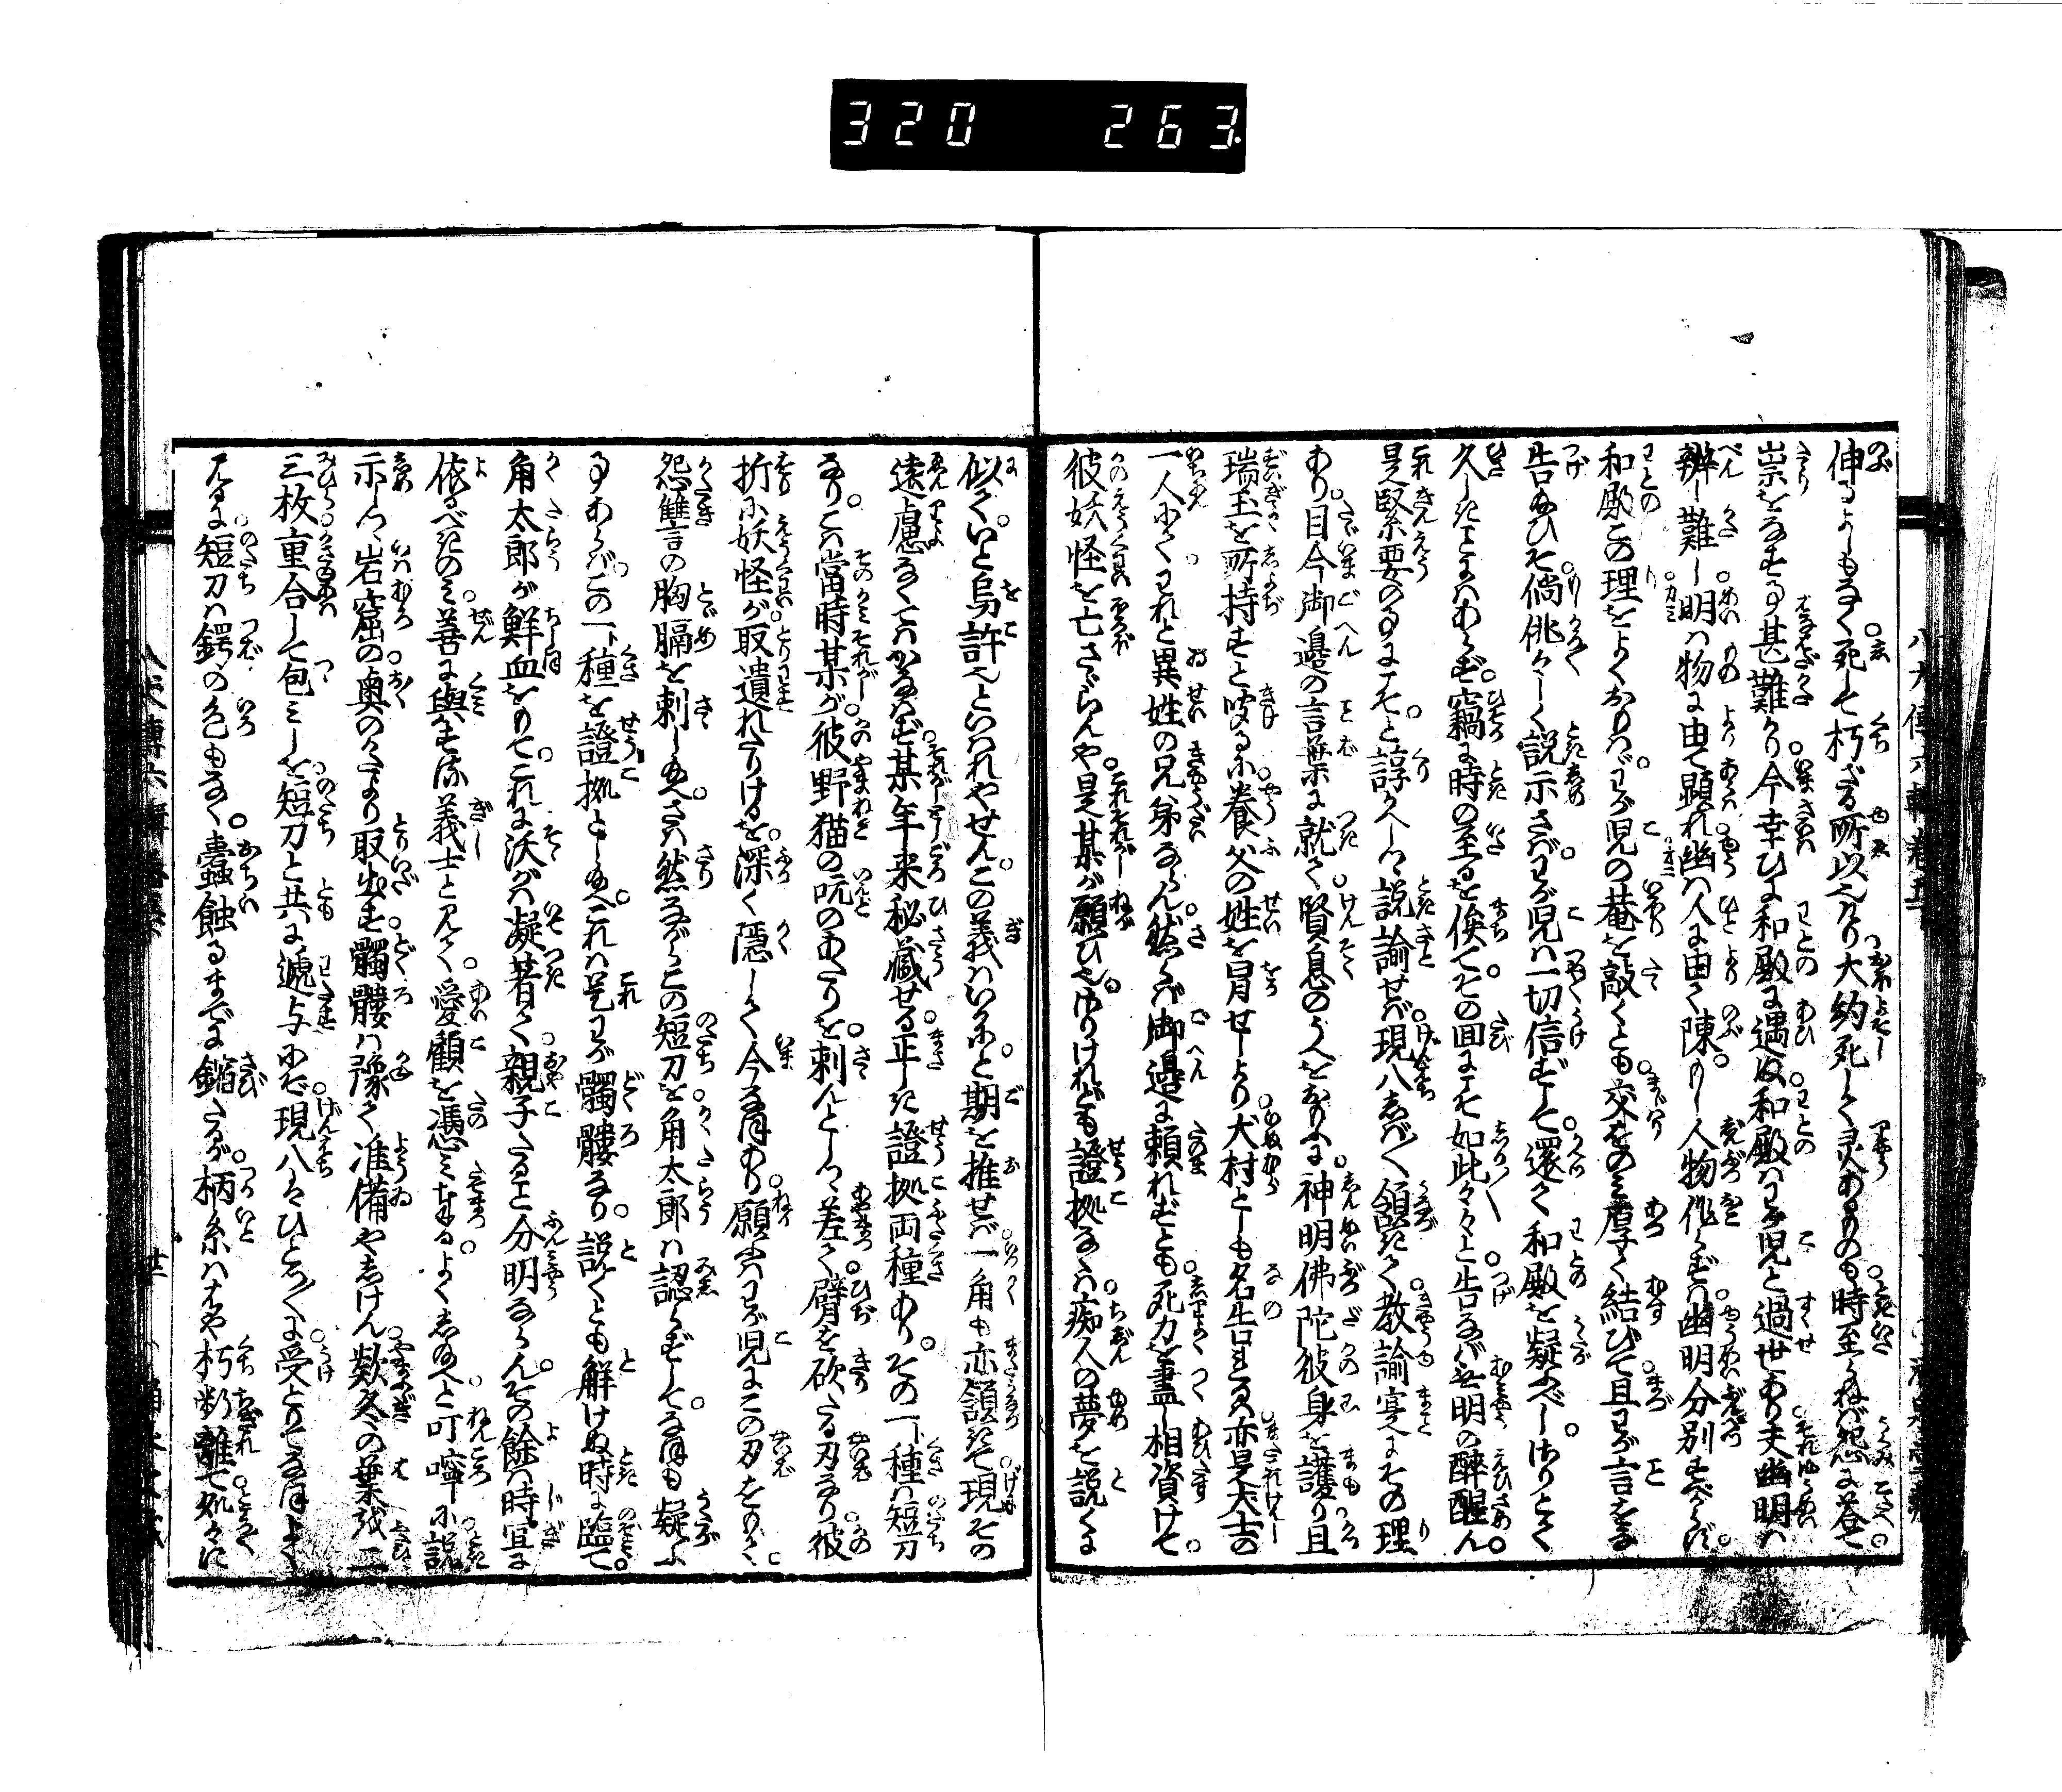 320 263
伸るよしもなく死して朽ざる所以也けり大約死して灵あるものも時至らねば怨に答て
祟をなす事甚難かり今幸ひに和殿に遇ぬ和殿はわが児と過世あり夫幽明は
辨し難し明は物に由て顕れ幽は人に由て陳のし人物作らずは幽明分別すべからず
和殿この理をよくおもはゞわが児の菴を敲くとも交をのミ厚く結びて且わが言をな
告給ひそ倘佻々しく説示さばわが児は一切信ずして還て和殿を疑ふべしさりとて
久しきことにはあらず竊に時の至るを俟てその回にこそ如此々々と告るならば無明の酔醒ん
是緊要の事にこそと諄かへしつゝ説諭せば現八しば〱領きて教諭寔にその理
あり目今御邉の言葉に就て賢息のうへをおもふに神明佛陀彼身を護り且
瑞玉を所持すと咬るに養父の姓を冒せしより犬村としも名告れるは亦是犬士の
一人にてわれと異姓の兄弟ならん然らば御邉に頼れずとも死力を盡し相資けて
彼妖怪を亡さゞらんや是某が願ひ也さりけれども證拠なくは痴人の夢を説くに
似ていと烏許也といはれやせんこの義はいかにと期を推せば一角も亦頷きて現その
遠慮なくてはかなはず某年来秘蔵せる正しき證拠両種ありその一種は短刀
なりこは當時某が彼野猫の吭のあたりを刺んとしつゝ差て臂を砍たる刃なり彼
折に妖怪が取遺れたりけるを深く隠して今なほあり願ふはわが児にこの刃をもて
怨讐言の胸膈を刺し給へさは然ながらこの短刀を角太郎は認らずしてなほも疑ふ
事あらばこの一種を證拠とし給へこれは是わが髑髏なり説くとも解けぬ時に臨て
角太郎が鮮血をもてこれに沃がは凝着て親子たること分明ならんその餘は時宜に
依るべきのミ善に與せる義士と見て愛顧を憑ミまゐらするよくし給へと叮嚀に説
示しつゝ岩窟の奥のかたより取出す髑髏は豫て准備やしけん欵冬の葉弐
三枚重合して包ミしを短刀と共に遞与にぞ現八はひとつ〱に受とりてなほよく
見るに短刀は鍔の色もなく蠧蝕るまでに錆たるが柄糸ははや朽断離て処々に